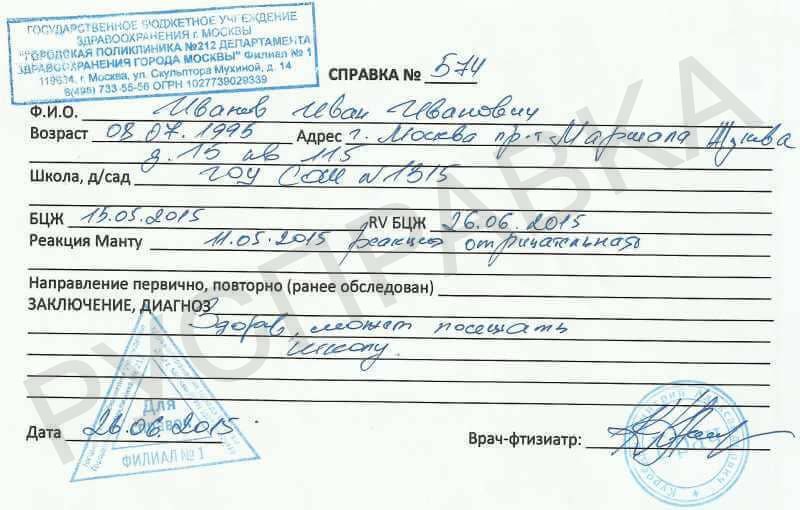 ГОСУДАРСТВЕННОЕ БЮДЖЕТНОЕ УЧРЕЖДЕНИЕ
ЗДРАВООХРАНЕНИЯ г. МОСКВЫ
"ГОРОДСКАЯ ПОЛИКЛИНИКА №212 ДЕПАРТАМЕНТА
ЗДРАВООХРАНЕНИЯ ГОРОДА МОСКВЫ" Филиал № 1
119634, г. Москва, ул. Скульптора Мухиной, д. 14
8(495) 733-55-56 ОГРН 1027739029339
СПРАВКА № 574
Ф.И.О. Иванов Иван Иванович
Возраст 08.07.1995 Адрес г. Москва пр-т Маршала Жукова
д. 15 кв 115
Школа, д/сад ГОУ СОШ №1315
БЦЖ 15.05.2015 RV БЦЖ 26.06.2015
Реакция Манту 11.05.2015 реакция отрицательная
Направление первично, повторно (ранее обследован)
ЗАКЛЮЧЕНИЕ, ДИАГНОЗ
Здоров, может посещать
школу.
РУСПРАВКА
Для
справок
ФИЛИАЛ №1
Дата 26.06.2015
Врач-фтизиатр: